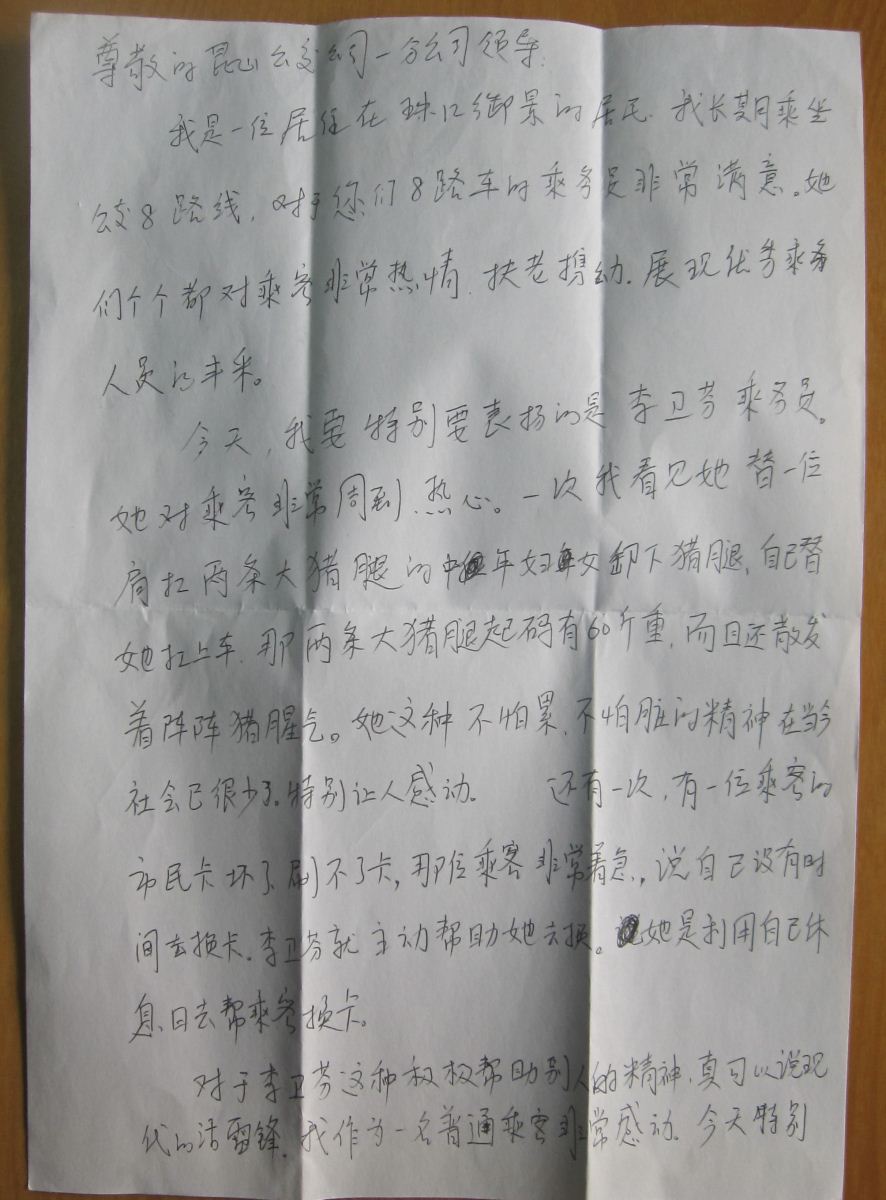 尊敬的昆山公交公司一分公司领导:
我是一位居住在珠江御景的居民.我长期乘坐
公交8路线,对于您们8路车的乘务员非常满意。她
们个个都对乘客非常热情.扶老携幼.展现优秀乘务
人员的丰采。
今天,我要特别要表扬的是李卫芬乘务员。
她对乘客非常周到.热心。一次我看见她替一位
肩扛两条大猪腿的中年妇女卸下猪腿,自己替
她扛上车.那两条大猪腿起码有60斤重,而且还散发
着阵阵猪腥气。她这种不怕累、不怕脏的精神在当今
社会已很少了。特别让人感动。 还有一次,有一位乘客的
市民卡坏了刷不了卡,那位乘客非常着急,说自己没有时
间去换卡.李卫芬就主动帮助她去换。她是利用自己休
息日去帮乘客换卡。
对于李卫芬这种积极帮助别人的精神,真可以说现
代的活雷锋.我作为一名普通乘客非常感动.今天特别